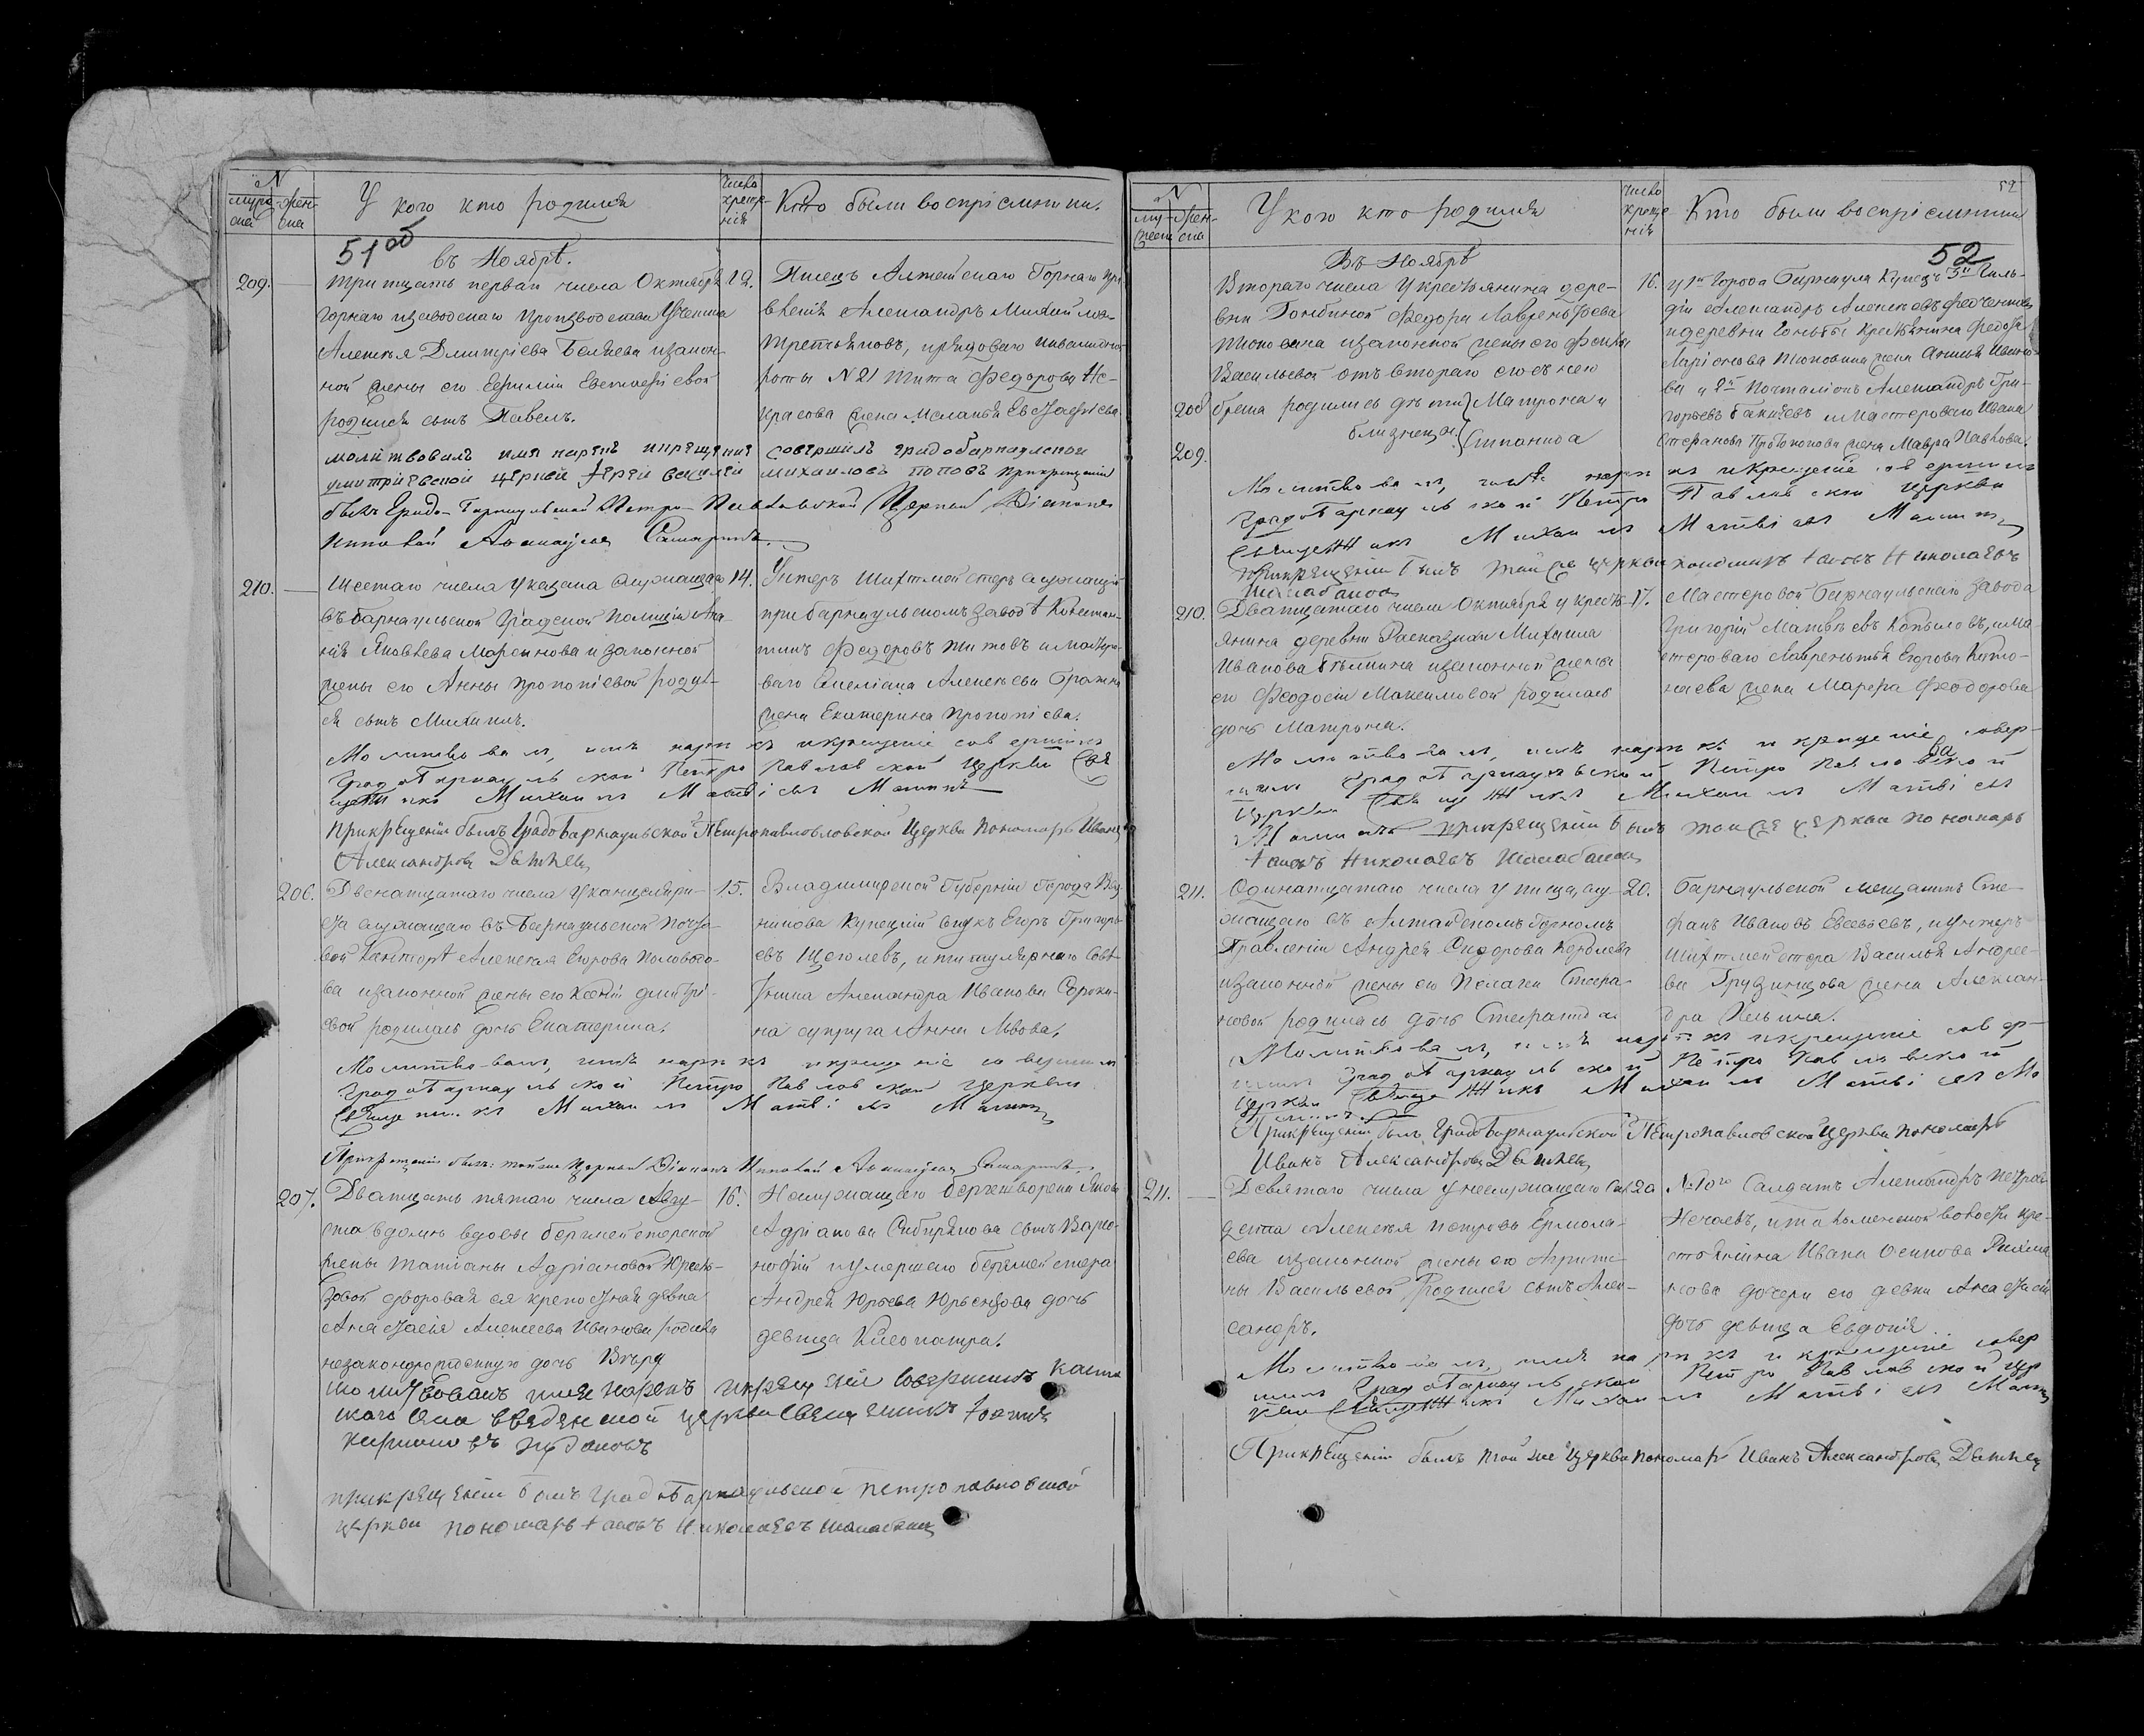 №
муже-
ска
жен-
ска
У кого кто родился
Число
креще-
нія
Кто были воспріемники.
51 об
въ Ноябрѣ.
209.
тритцать перваго числа Октября
12.
Горнаго и заводскаго производства Ученика
Алексѣя Дмитріева Бѣляева и закон-
ной жены его Ефиміи
родился сынъ Павелъ.
Писецъ Алтайскаго Горнаго пра-
вленія Александръ Михайловъ
Третьяковъ, и рядоваго инвалидной
роты N 21 Тита Федорова Не-
красова жена Меланья Евстафіева.
молитвовалъ имя нарекъ и крещеніе совершилъ градобарнаульской
Дмитріевской церкви Іерей Василій Михайловъ Поповъ при крещеніи
былъ Градо-Барнаульской Петро-Павловской Церкви Діаконъ
Николай Самаринъ.
210.
Шестаго числа у казака служащаго
14.
въ Барнаульской Градской Полиціи Ана-
нія Яковлева и законной
жены его Анны Прокопіевой родил-
ся сынъ Михаилъ.
Унтеръ шихтмейстеръ служащій
при Барнаульскомъ заводѣ Констан-
тинъ Федоровъ Титовъ и мастеро-
ваго Алексѣева
жена Екатерина Прокопіева.
Молитвовалъ, имя нарекъ и крещеніе совершилъ
Градобарнаульской Петропавловской Церкви Свя
щенникъ Михаилъ Матвіевъ
При крещеніи былъ Градобарнаульской Петропавловской Церкви Пономарь Иванъ
Александровъ
206.
Двенатцатаго числа у канцеляри-
15.
ста служащаго въ Барнаульской
Конторѣ Алексѣя Егорова
ва и законной жены его Ксеніи Дмитрі-
евой родилась дочь Екатерина.
Владимирской Губерніи города Вяз-
никова Купецкій внукъ Егоръ Григорь-
евъ Щеголевъ, и титулярнаго Совѣ-
тника Александра Иванова Сороки-
на супруга Анна Львова.
Молитвовалъ, имя нарекъ и крещеніе совершилъ
Градобарнаульской Петро Павловской Церкви
Священникъ Михаилъ Матвіевъ
При крещеніи былъ: той же Церкви Діаконъ Николай Самаринъ.
207.
Дватцать пятаго числа Авгу-
16.
ста в домѣ вдовы бергмейстерской
жены Татіаны Адріановой Юрьен-
дворовая ея крепостная девка
Анастасія Алексеева Иванова родила
незаконнорожденную дочь Вѣру
Неслужащаго Берггешворена Якова
Адріанова Сибирякова сынъ Варо-
нофій и умершаго бергмейстера
Андрея Юрьева дочь
девица Клеопатра.
молитвовалъ имя нарекъ и крещеніе совершилъ
скаго села Введенской церкви священникъ Іоаннъ
при крещеніи былъ градобарнаульской петропавловской
церкви пономарь Іаковъ Николаевъ Шалабановъ
№
му-
жеск
жен-
ска
У кого кто родился
Число
креще-
нія
Кто были воспріемники
52
52
Въ Ноябрѣ
Втораго числа у крестьянина дере-
16.
вни Федора Лаврентьева
Тюковина и законной жены его Феклы
Васильевой отъ втораго его съ нею
208
брака родились дѣти Матрона и
209.
близнецы Стпанида
у 1й Города Барнаула Купецъ 3й Гиль-
діи Александръ Алексѣевъ Федченковъ
и деревни крестьянина Федота
Ларіонова Тюковина жена Аксинья Ивано-
ва у 2й Почталіонъ Александръ Гри-
горьевъ и мастероваго Ивана
Стефанова Протопопова жена Мавра Павлова.
Молитвовалъ, имя нарекъ и крещеніе совершилъ
градобарнаульской Петро Павловской Церкви
Священникъ Михаилъ Матвіевъ
При крещеніи былъ той же церкви пономарь Іаковъ Николаевъ
Шалабановъ
210.
Дватцатаго числа Октября у кресть-
17.
янина деревни Расказихи Михаила
Иванова и законной жены
его Феодосіи Максимовой родилась
дочь Матрона.
Мастеровой Барнаульскаго завода
Григорій Матвѣевъ Копыловъ, и ма-
стероваго Лаврентья Егорова
жена Марфа Феодорова
Молитвовалъ, имя нарекъ и крещеніе совер-
шилъ Градобарнаульской Петро Павловской
Церкви Священникъ Михаилъ Матвіевъ
при крещеніи былъ той же церкви пономарь
Іаковъ Николаевъ Шалабановъ
211.
Одинатцатаго числа у писца, слу-
20.
жащаго въ Алтайскомъ Горномъ
Правленіи Андрея Сидорова Королева
и законной жены его Пелагеи Стефа-
новой родилась дочь Стефанида
Барнаульской мещанинъ Сте-
фанъ Ивановъ Евсевьевъ, и унтеръ
шихтмейстера Василья Андрее-
ва Грузинцова жена Алексан-
дра Ильина.
Молитвовалъ, имя нарекъ и крещеніе совер-
шилъ Градобарнаульской Петро Павловской
Церкви Священникъ Михаилъ Матвіевъ
При крещеніи былъ Градобарнаульской Петропавловской Церкви Пономарь
Иванъ Александровъ
211.
Девятаго числа у неслужащаго Сол-
20
дата Алексѣя Петрова Ермола-
ева и законной жены его Агрипи-
ны Васильевой родился сынъ Алек-
сандръ.
№ 10го Солдатъ Александръ Петровъ
Нечаевъ, и волости кре-
стьянина Ивана Осипова
дочери его девки Анастасіи
дочь девица Евдокія
Молитвовалъ, имя нарекъ и крещеніе совер
шилъ Градобарнаульской Петро Павловской Цер
кви Священникъ Михаилъ Матвіевъ
При крещеніи былъ той же Церкви пономарь Иванъ Александровъ